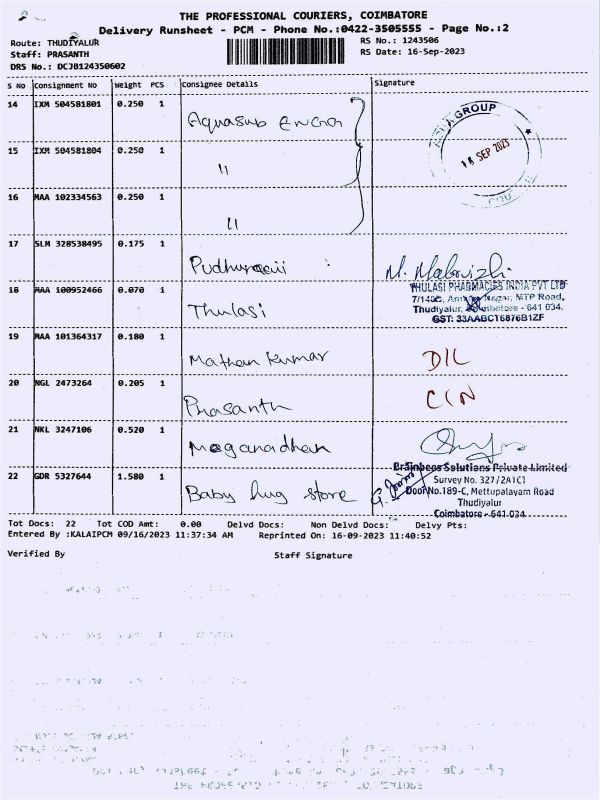 2
THE PROFESSIONAL COURIERS, COIMBATORE
Delivery Runsheet - PCM - Phone No.:0422-3505555 - Page No.:2
Route: THUDIYALUR
RS No.: 1243506
Staff: PRASANTH
RS Date: 16-Sep-2023
DRS No.: DCJB124350602
S No Consignment No Weight PCS Consignee Details Signature
14 IXM 504581801 0.250 1 Aquasub
GROUP
16 SEP 2023
15 IXM 504581804 0.250 1 "
16 MAA 102334563 0.250 1 "
17 SLM 328538495 0.175 1
18 MAA 100952466 0.070 1 Thulasi
THULASI PHARMACIES INDIA PVT LTD
Nagar, MTP Road,
Thudiyalur, Coimbatore - 641 034.
GST: 33AABCT6876B1ZF
19 MAA 101364317 0.180 1 Mathan Kumar D/L
20 NGL 2473264 0.205 1 Prasanth C/N
21 NKL 3247106 0.520 1 Meganadhan
22 GDR 5327644 1.580 1 Baby hug store
Brainbees Solutions Private Limited
Survey No. 327/2A1C1
Door No.189-C, Mettupalayam Road
Thudiyalur
Coimbatore - 641 034
Tot Docs: 22 Tot COD Amt: 0.00 Delvd Docs: Non Delvd Docs: Delvy Pts:
Entered By :KALAIPCM 09/16/2023 11:37:34 AM Reprinted On: 16-09-2023 11:40:52
Verified By Staff Signature